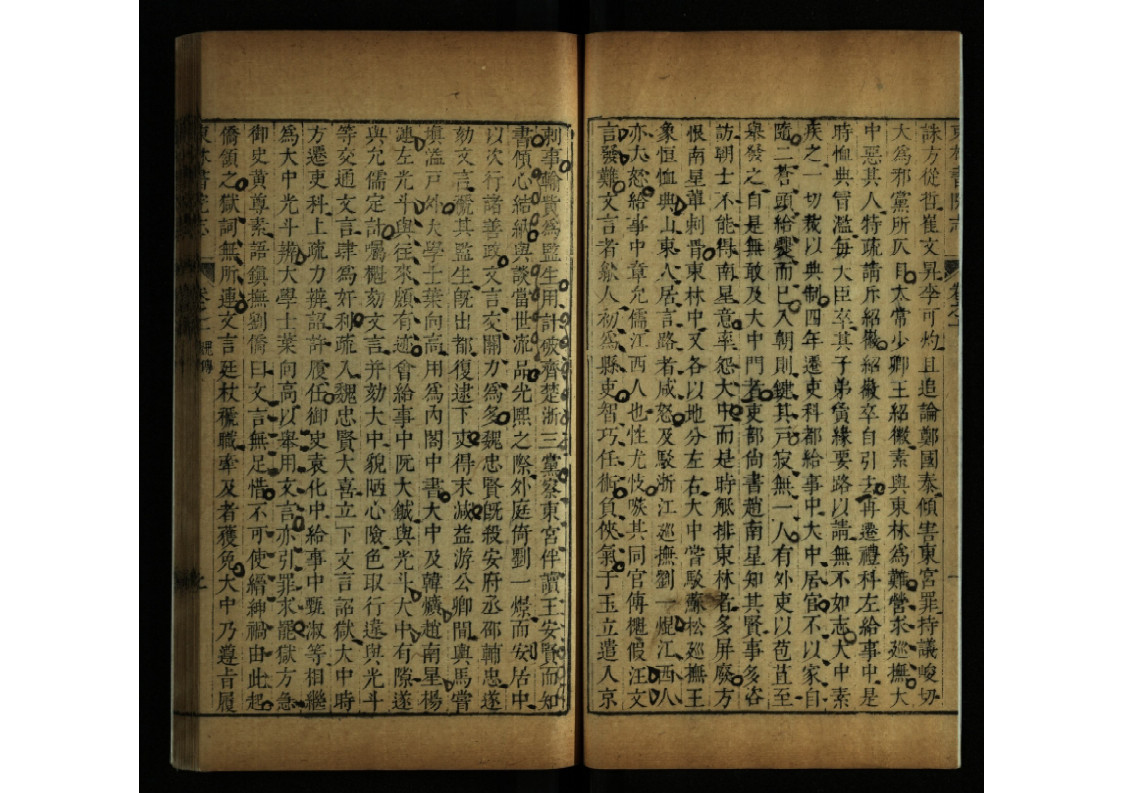 東林書院志 卷之
誅方從哲崔文昇李可灼且追論鄭國泰傾害東宮罪持議峻切
大爲邪黨所仄目太常少卿王紹徽素與東林爲難營求巡撫大
中惡其人特疏請斥紹徽紹徽卒自引去再遷禮科左給事中是
時恤典冒濫每大臣卒其子弟夤緣要路以請無不如志大中素
疾之一切裁以典制四年遷吏科都給事中大中居官不以家自
隨二蒼頭給爨而已入朝則鍵其戸寂無一人有外吏以苞苴至
舉發之自是無敢及大中門者吏部尚書趙南星知其賢事多咨
訪朝士不能得南星意率怨大中而是時牴排東林者多屏廢方
恨南星輩刺晋東林中又各以地分左右大中嘗駁蘇松巡撫王
象恒恤典山東人居言路者咸怒及駁浙江巡撫劉一焜江西人
亦大怒給事中章允儒江西人也性尤忮嗾其同官傅櫆假汪文
言發難文言者歙人初爲縣吏智巧任術負俠氣于玉立遣人京
刺事輸貲爲監生用計破齊楚浙三黨察東宮伴讀王安賢而知
書傾心結納與談當世流品光熙之際外庭倚劉一燝而安居中
以次行諸善政文言交關力爲多魏忠賢旣殺安府丞邵輔忠遂
劾文言褫其監生旣出都復逮下吏得末減益游公卿間輿馬嘗
塡溢戸外大學士葉向高用爲內閣中書大中及韓爌趙南星楊
漣左光斗與往來頗有迹會給事中阮大鋮與光斗大中有隙遂
與允儒定計囑櫆劾文言并劾大中貌陋心險色取行違與光斗
等交通文言肆爲奸利疏入魏忠賢大喜立下文言詔獄大中時
方遷吏科上疏力辨詔許履任御史袁化中給事中甄淑等相繼
爲大中光斗辨大學士葉向高以舉用文言亦引罪求罷獄方急
御史黃尊素語鎮撫劉僑曰文言無足惜不可使縉紳禍由此起
僑頷之獄詞無所連文言廷杖褫職牽及者獲免大中乃遵㫖履
東林書院志 卷之 列傳